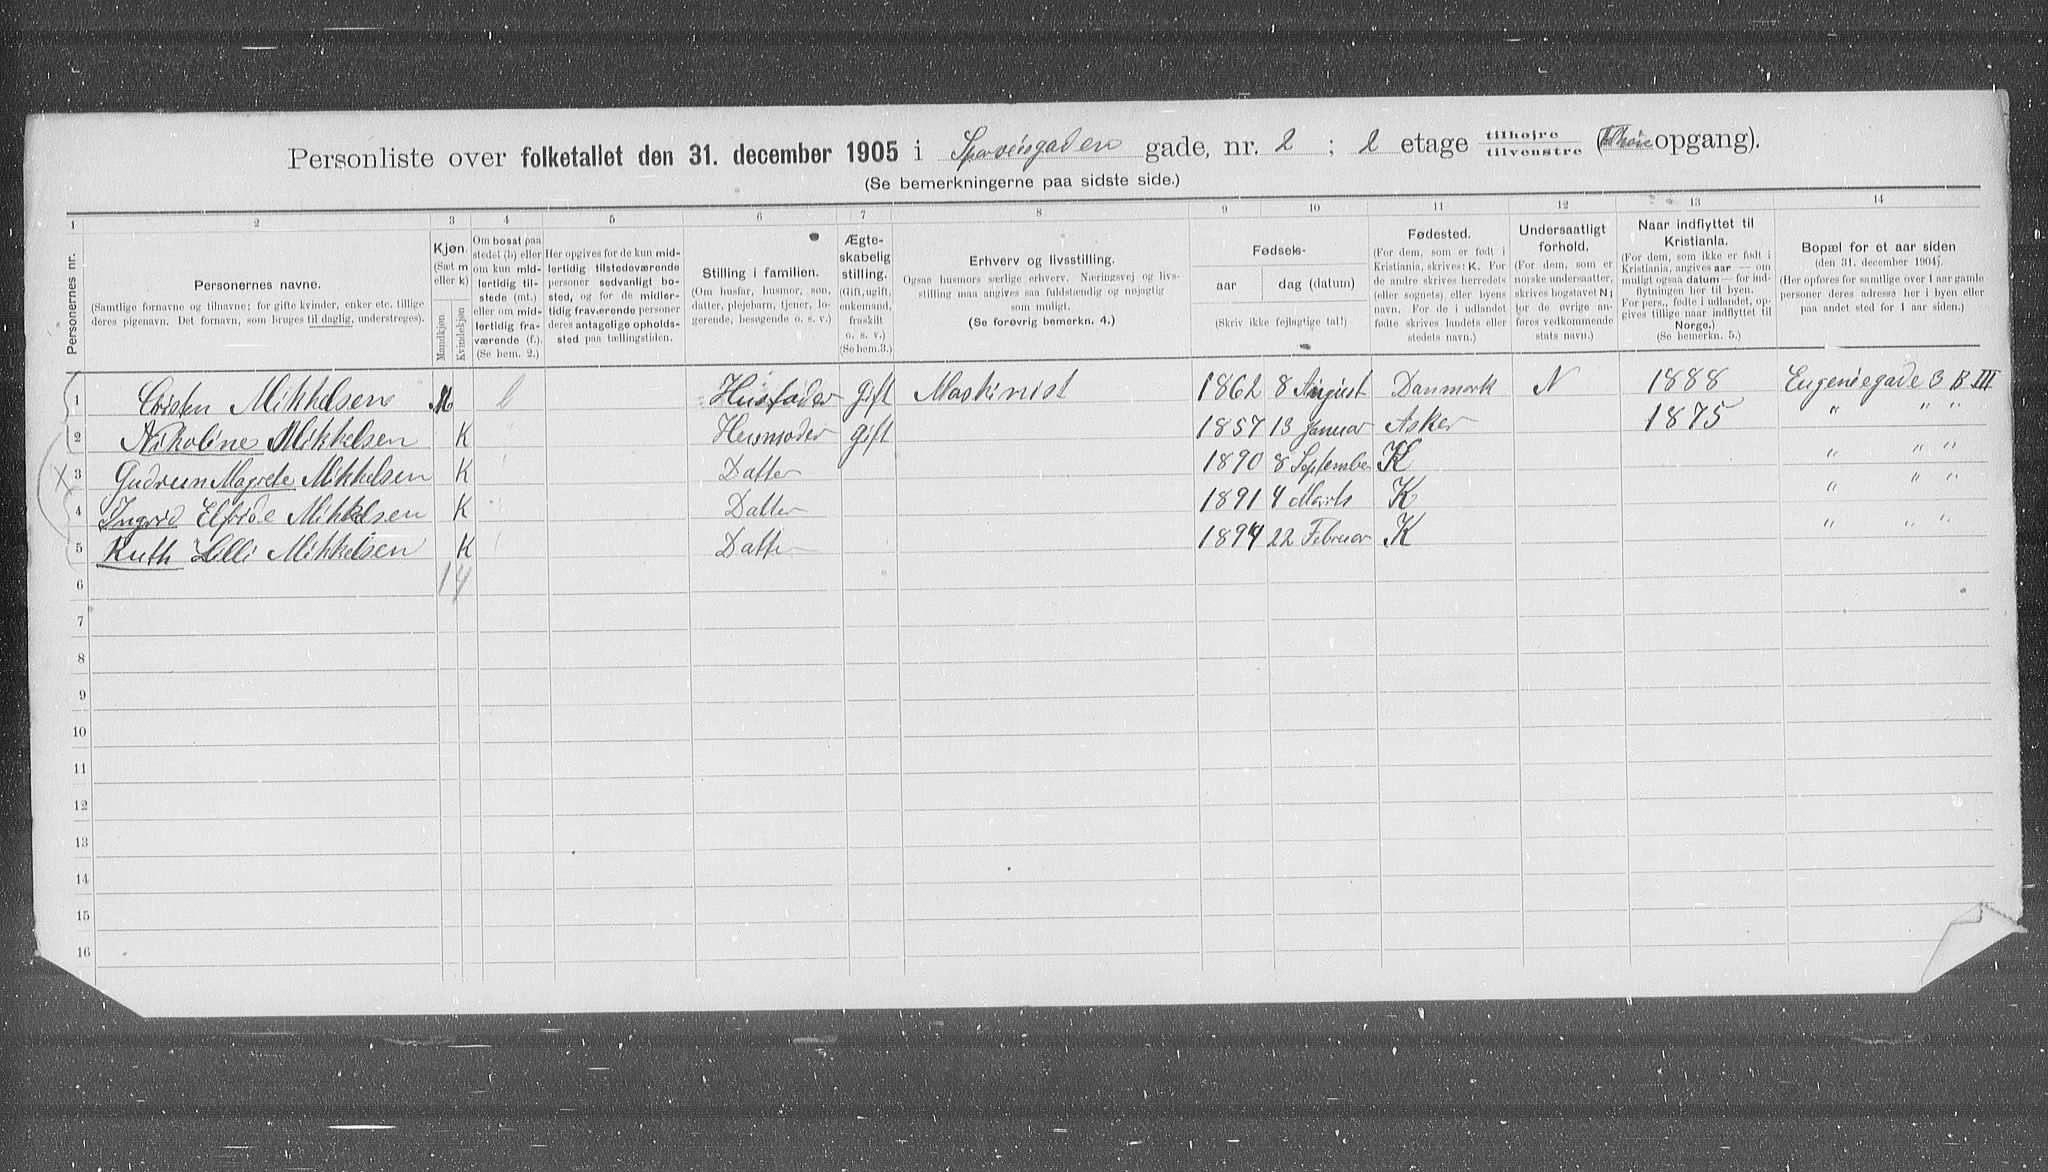 Personliste over folketallet den 31. december 1905 i Sporveisgaden gade, nr. 2 ; 2 etage tilhøire tilvenstre (tilhøire opgang).
(Se bemerkningerne paa sidste side.)
1 2 3 4 5 6 7 8 9 10 11 12 13 14
Personernes nr.
Personernes navne.
(Samtlige fornavne og tilnavne; for gifte kvinder, enker etc. tillige
deres pigenavn. Det fornavn, som bruges til daglig, understreges).
Kjøn.
(Sæt m
eller k)
Mandkjøn
Kvindekjøn
Om bosat paa
stedet (b) eller
om kun mid-
lertidig til-
stede (mt.)
eller om mid-
lertidig fra-
værende (f.).
(Se bem. 2.)
Her opgives for de kun mid-
lertidig tilstedeværende
personer sedvanligt bo-
sted, og for de midler-
tidig fraværende personer
deres antagelige opholds-
sted paa tællingstiden.
Stilling i familien.
(Om husfar, husmor, søn,
datter, plejebarn, tjener, lo-
gerende, besøgende o. s. v.)
Ægte-
skabelig
stilling.
(Gift, ugift,
enkemand,
fraskilt
o. s. v.)
(Se bem. 3.)
Erhverv og livsstilling.
Ogsaa husmors særlige erhverv. Næringsvej og livs-
stilling maa angives saa fuldstændig og nøjagtig
som muligt.
(Se forøvrig bemerkn. 4.)
Fødsels-
aar
dag (datum)
(Skriv ikke fejlagtige tal!)
Fødested.
(For dem, som er født i
Kristiania, skrives: K. For
de andre skrives herredets
(eller sognets) eller byens
navn. For de i udlandet
fødte skrives landets eller
stedets navn.)
Undersaatligt
forhold.
(For dem, som er
norske undersaatter,
skrives bogstavet N;
for de øvrige an-
føres vedkommende
stats navn.)
Naar indflyttet til
Kristiania.
(For dem, som ikke er født i
Kristiania, angives aar — om
muligt ogsaa datum — for ind-
flytningen her til byen.
For pers., fødte i udlandet, op-
gives tillige naar indflyttet til
Norge.)
(Se bemerkn. 5.)
Bopæl for et aar siden
(den 31. december 1904).
(Her opføres for samtlige over 1 aar gamle
personer deres adresse her i byen eller
paa andet sted for 1 aar siden.)
1 Cristen Mikkelsen M b Husfader gift Maskinist 1862 8 August Danmark N 1888 Eugeniegade 3 B III
2 Nikoline Mikkelsen K " Husmoder gift 1857 13 Januar Asker 1875 " " "
X 3 Gudrun Magrete Mikkelsen K " Datter 1890 8 September K " " "
4 Ingrid Elfride Mikkelsen K " Datter 1891 4 Marts K " " "
5 Ruth Lilli Mikkelsen K " Datter 1894 22 Februar K " " "
6 1 4
7
8
9
10
11
12
13
14
15
16